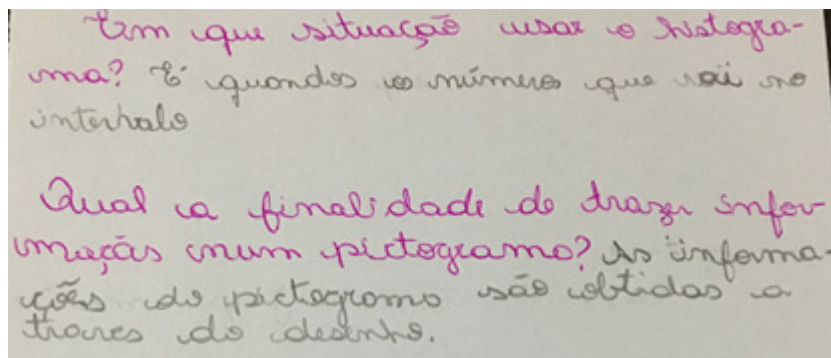 Em que situação usar o histogra-
ma? É quandos os número que vai no
intervalo
Qual a finalidade de trazer infor-
mação num pictograma? As informa-
ções do pictograma são obtidas a
traves do desenho.